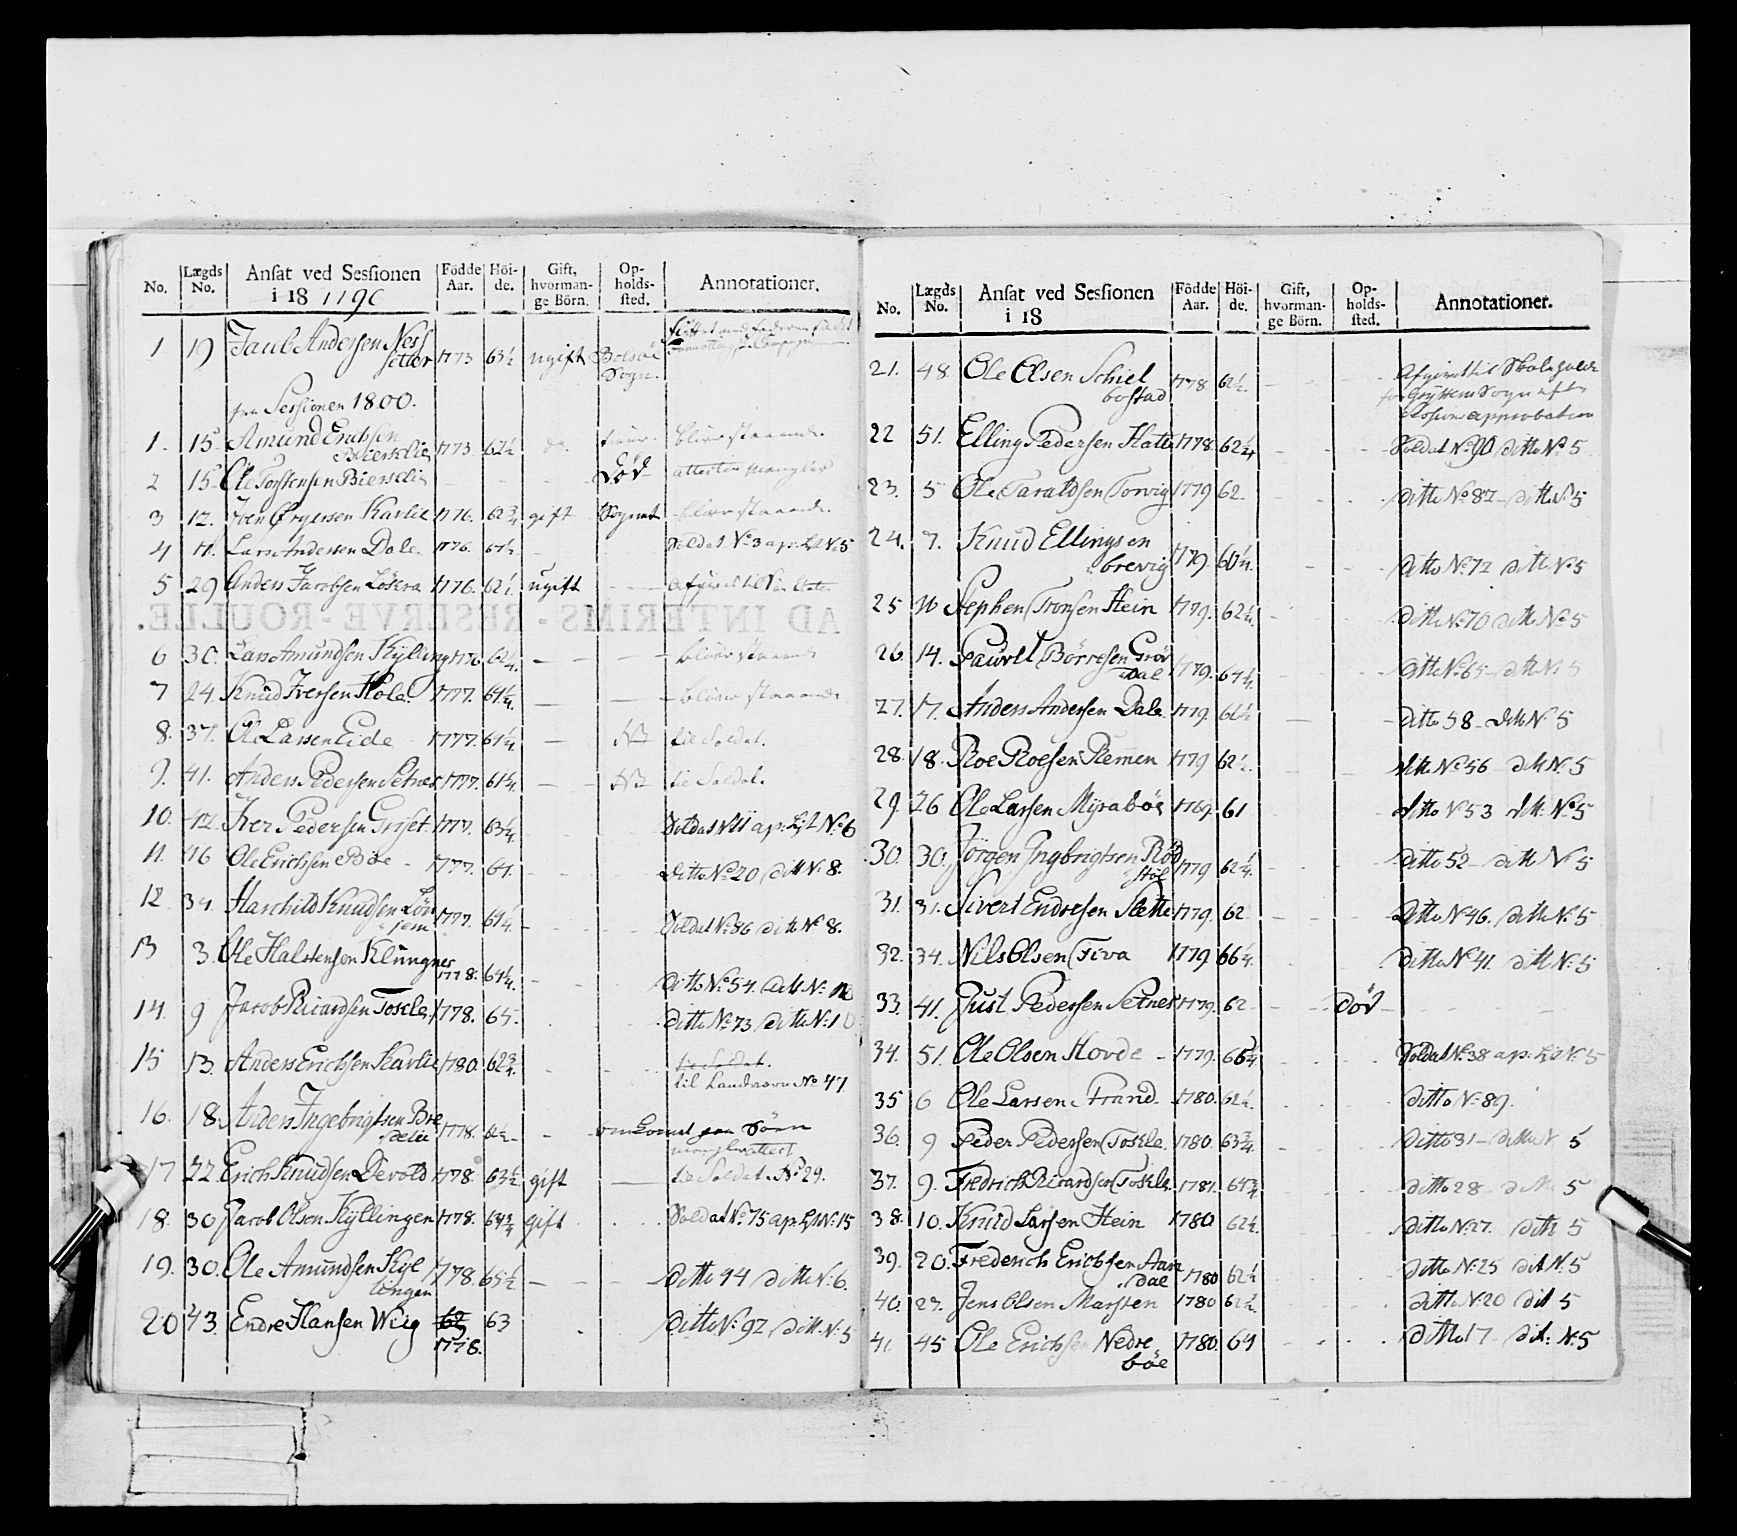 No. Lægds No. Ansat ved Sessionen i 18 1796 Födde Aar. Höi-de. Gift, hvorman-ge Börn. Op-holds-sted. Annotationer.
1 19 Jacob Andersen Ness
setter 1773 63½ ugift Bolsöe
Sogn.
fra Sessionen 1800.
1. 15 Amund Erichsen
Bierschlie 1773 62½ bliver staaende
2 15 Ole Torstensen Bierschlie - - - Död attesten mangler
3 12. Iven Örgersen Karlie 1776. 62¾ gift Sognet bliver staaende
4 11. Lars Andersen Dale 1776. 61½ Soldat No 3 apr: L:2 No 5
5 29 Anders Jacobsen Lösera 1776. 62½ ugift
AD INTERIMS - RESERVE - ROULLE.
6 30. Lars Amundsen Kylling 1776 62¼ — — bliver staaende
7 24. Knud Iversen Hole 1777. 61¼ — — bliver staaende
8. 37. Ole Larsen Eide 1777. 61¼ — til Soldat.
9. 41. Anders Pedersen Setnes 1777. 61¼ — til Soldat.
10. 42. Iver Pedersen Griset 1777. 63¼ Soldat No 11 apr: L:2 No 6
11. 46 Ole Erichsen Böe 1777. 61. Ditto No 20 ditto No 8.
12 34. Harchild Knudsen Lön
sem 1777. 61¼ Soldat No 86 ditto No 8.
13 3. Ole Halstensen Klungnes
1778. 64¼ ditto No 54. ditto No 10
14. 9 Jacob Ricardsen Toscle 1778. 65. ditto No 73 ditto No 10
15 13. Anders Erichsen Karlie 1780. 62¾ til Soldat.
til Landværn No 47
16. 18. Anders Ingebrigtsen Bre
delie 1778. 61½ - omkommet paa Söen
mangler attest
17 22. Erich Knudsen Devold 1778. 63½ gift — til Soldat No 29.
18. 30 Jacob Olsen Kyllingen 1778. 64¾ gift Soldat No 75 apr: L:1 No 15
19. 30. Ole Amundsen Kyl
lingen 1778. 65½ — ditto 94 ditto No 6.
20 43. Endre Hansen Wiig 63
1778. ditto No 92, ditto No 5
No. Lægds No. Ansat ved Sessionen i 18 Födde Aar. Höi-de. Gift, hvorman-ge Börn. Op-holds-sted. Annotationer.
21. 48 Ole Olsen Schiel
bostad 1778. 62½. Afgivet til Skoleholder
for Gryttens Sogn efter
approbation
22 51. Elling Pedersen Hatle 1778. 62¼ Soldat No 90 ditto No 5
23. 5 Ole Taraldsen Torvig 1779 62. ditto No 87 ditto No 5
24. 7. Knud Ellingsen
brevig 1779. 60½ ditto No 72 ditto No 5
25 10 Stephen Tronsen Hein 1779. 62¼ ditto No 70 ditto No 5
26. 14. Sauvlt Börresen Gröv
dal 1779. 64¼ ditto No 65 ditto No 5
27. 17. Anders Andersen Dale 1779. 62½ — ditto 58 ditto No 5
28. 18. Roe Roesen Remmen 1779 62½. ditto No 56 ditto No 5
29. 26 Ole Larsen Myraböe 1769. 61 ditto No 53 ditto No 5
30. 30. Jörgen Ingbrigtsen Röd
stöl 1779 62¼. ditto 52 ditto No 5
31. 31. Sivert Endresen Slette 1779. 62 ditto No 46. ditto No 5
32. 34. Nils Olsen Tiva 1779 66¼ ditto No 41. ditto No 5
33. 41. Just Pedersen Setnes 1779. 62 död
34. 51. Ole Olsen Hovde 1779. Soldat No 38 apr: L:2 No 5
35 6 Ole Larsen Strand 1780. 62½. ditto No 89.
36. 9 Peder Pedersen Toscle 1780. 63¾ ditto 31 ditto No 5
37. 9. Fredrich Ricardsen Toscle 1781. 64¾ ditto 28 ditto 5
38. 10. Knud Larsen Hein 1780 62½. ditto No 27. ditto 5
39. 20. Frederich Erichsen Aan
dal 1780 62½ ditto No 25 ditto No 5
40. 27. Jens Olsen Marsten 1780 62½. ditto No 20 ditto 5
41. 45 Ole Erichsen Nedre
böe 1780. 64 ditto 17 ditto No 5